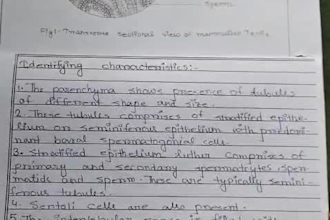 Sperm
Fig:- Transverse Sectional view of mammalian Testis
Identifying characteristics:-
1. The parenchyma shows presence of tubules
of different shape and size.
2. These tubules comprises of stratified epithe-
lium or seminiferous epithelium with predomi-
nant basal spermatogonial cells.
3. Stratified epithelium further comprises of
primary and secondary spermatocytes, sper-
matids and sperm. These are typically semini-
ferous tubules.
4. Sertoli cells are also present.
5. The interlobular space is filled with